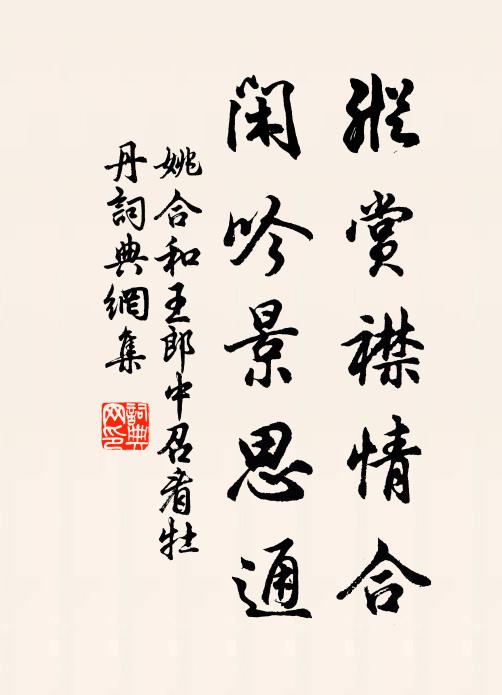 縱賞襟情合
閑吟景思通
姚合和王郎中召看牡
丹詞典網集
詞典网印